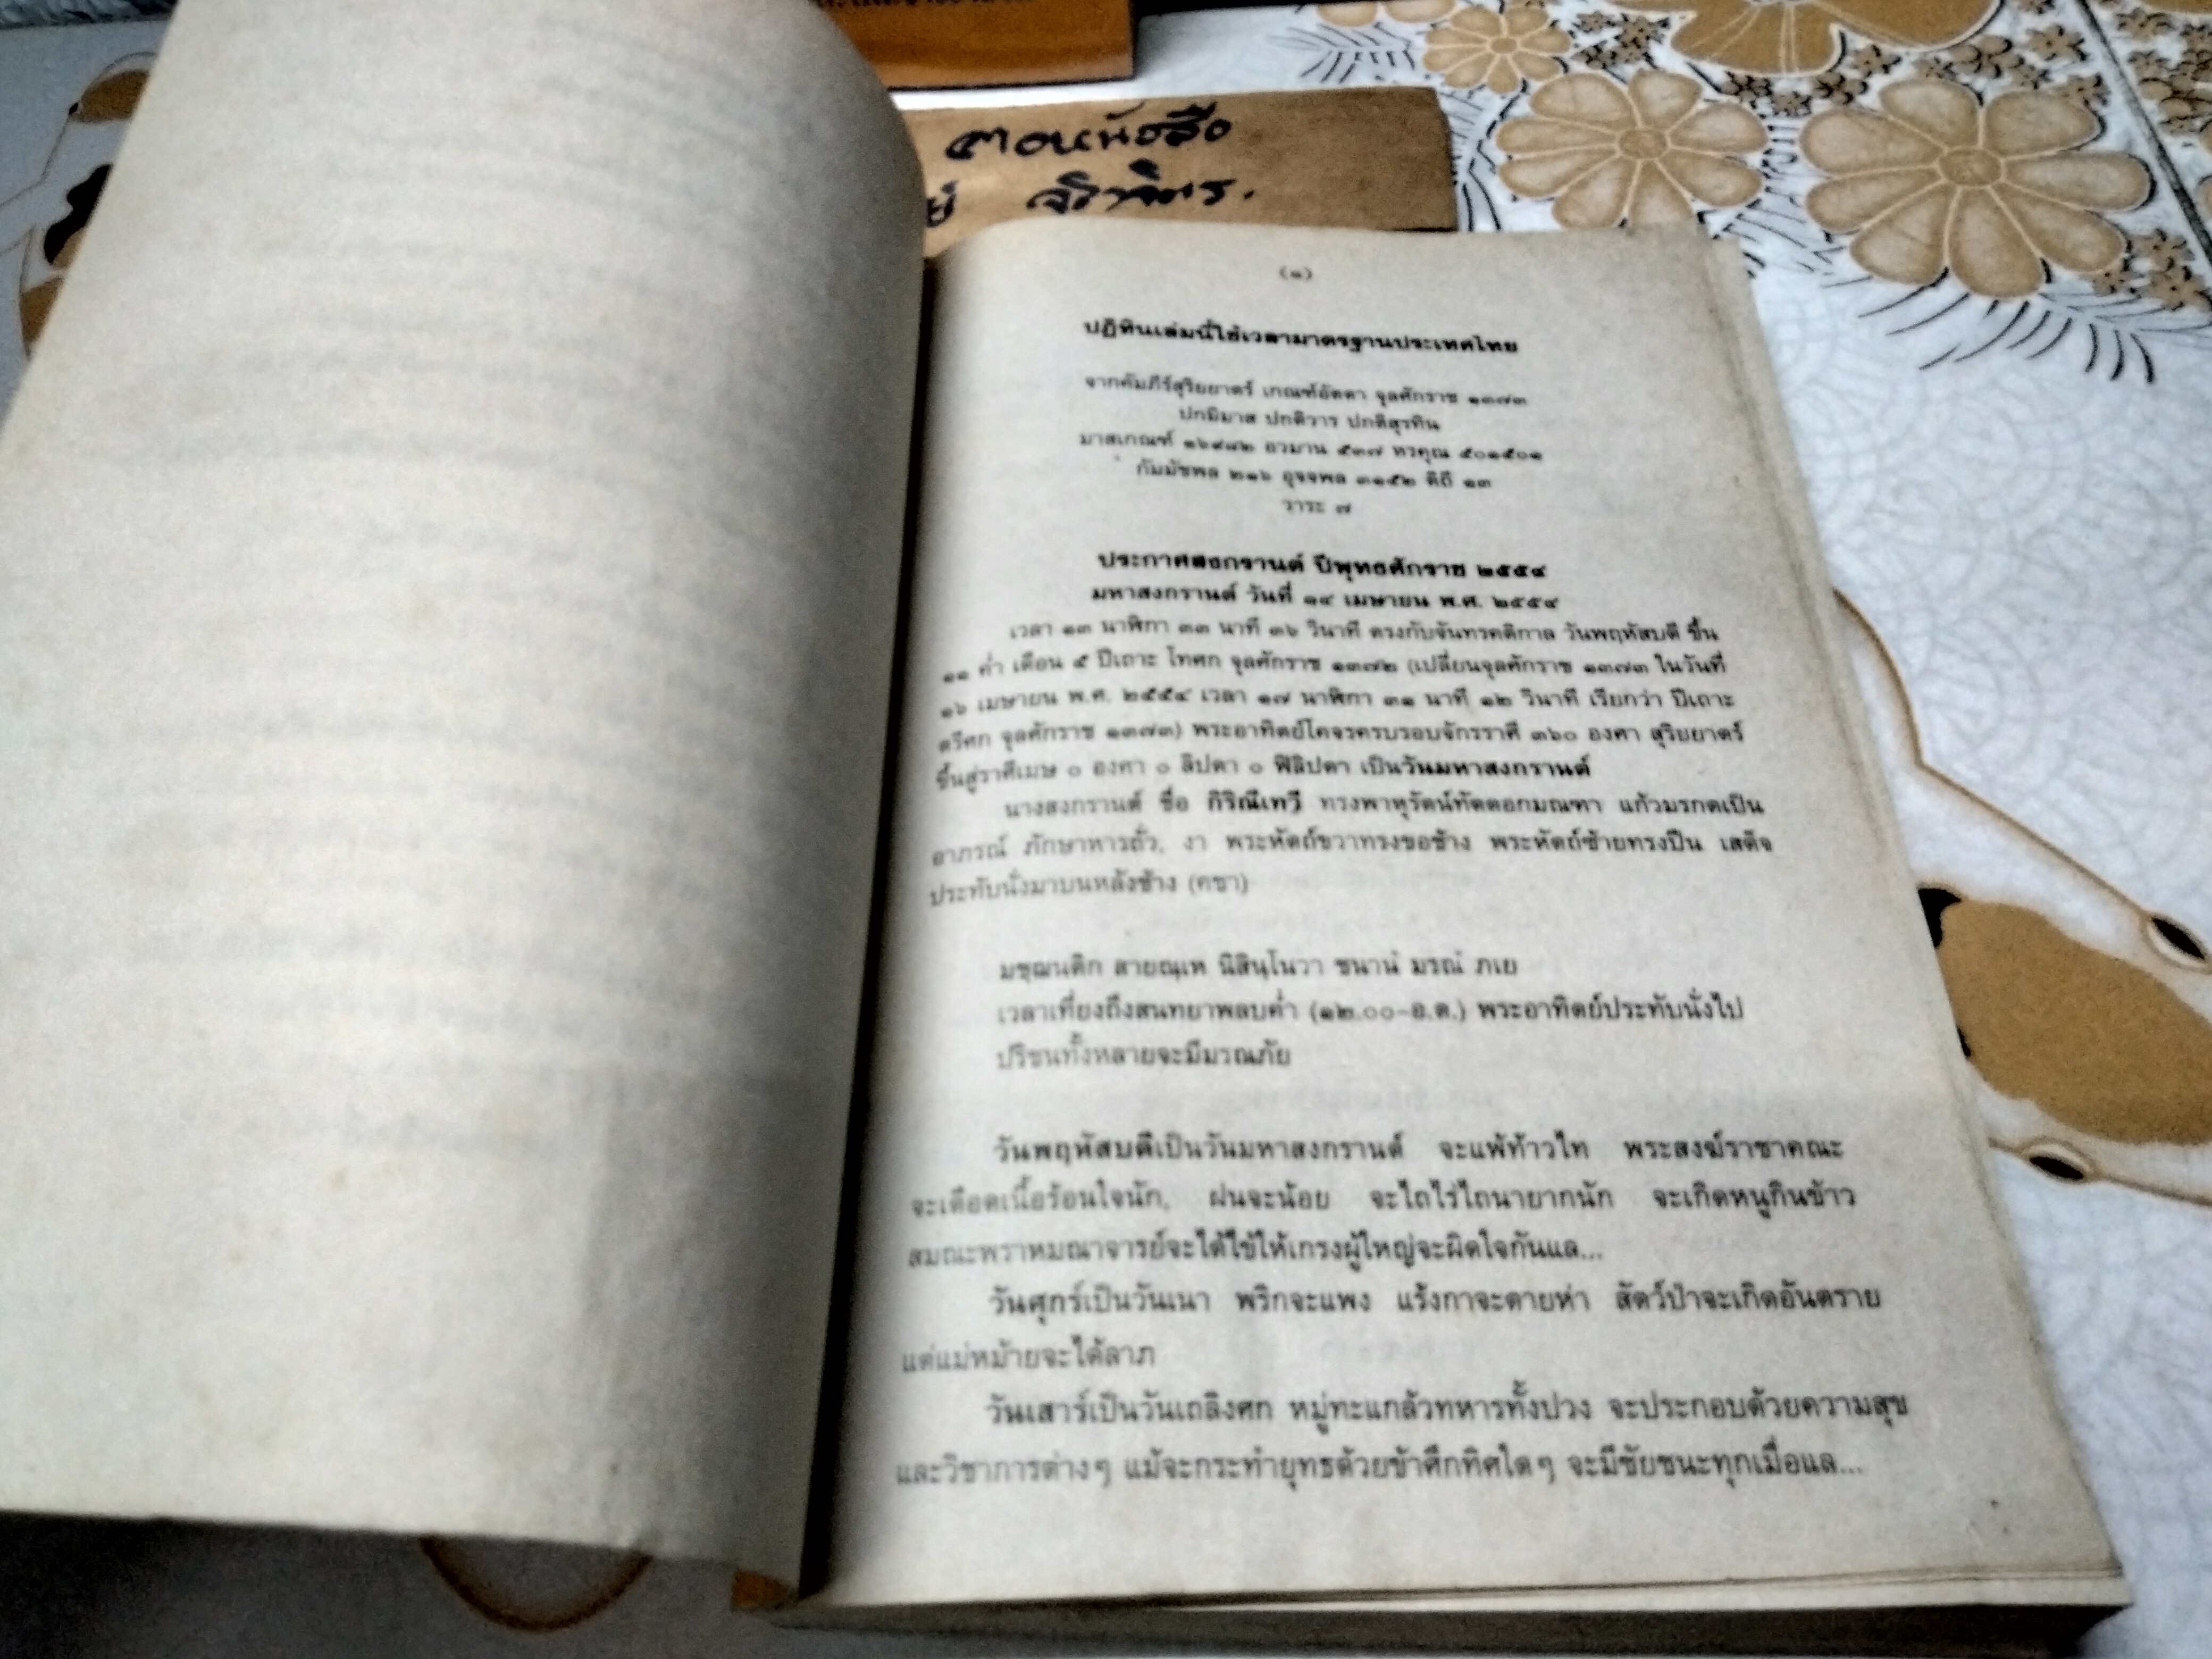 ตอนหนังสือ
(๑)
ปฏิทินเล่มนี้ใช้เวลามาตรฐานประเทศไทย
จากคัมภีร์สุริยยาตร์ เกณฑ์อัตตา จุลศักราช ๑๓๗๓
ปกมิมาส ปกติวาร ปกติสุรทิน
มาสเกณฑ์ ๑๖๙๘๒ อวมาน ๕๓๗ หรคุณ ๕๐๑๕๐๑
กัมมัชพล ๒๑๖ อุจจพล ๓๑๕๒ ดิถี ๑๓
วาระ ๗
ประกาศสงกรานต์ ปีพุทธศักราช ๒๕๕๔
มหาสงกรานต์ วันที่ ๑๔ เมษายน พ.ศ. ๒๕๕๔
เวลา ๑๓ นาฬิกา ๓๓ นาที ๓๖ วินาที ตรงกับจันทรคติกาล วันพฤหัสบดี ขึ้น
๑๑ ค่ำ เดือน ๕ ปีเถาะ โทศก จุลศักราช ๑๓๗๒ (เปลี่ยนจุลศักราช ๑๓๗๓ ในวันที่
๑๖ เมษายน พ.ศ. ๒๕๕๔ เวลา ๑๗ นาฬิกา ๓๑ นาที ๑๒ วินาที เรียกว่า ปีเถาะ
ตรีศก จุลศักราช ๑๓๗๓) พระอาทิตย์โคจรครบรอบจักรราศี ๓๖๐ องศา สุริยยาตร์
ขึ้นสู่ราศีเมษ ๐ องศา ๐ ลิปดา ๐ ฟิลิปดา เป็นวันมหาสงกรานต์
นางสงกรานต์ ชื่อ กิริณีเทวี ทรงพาหุรัดน์ทัดดอกมณฑา แก้วมรกตเป็น
อาภรณ์ ภักษาหารถั่ว, งา พระหัตถ์ขวาทรงขอช้าง พระหัตถ์ซ้ายทรงปืน เสด็จ
ประทับนั่งมาบนหลังช้าง (คชา)
มชฺฌนติก สายณฺเห นิสินฺโนวา ชนานํ มรณํ ภเย
เวลาเที่ยงถึงสนทยาพลบค่ำ (๑๒.๐๐-อ.ต.) พระอาทิตย์ประทับนั่งไป
ปริชนทั้งหลายจะมีมรณภัย
วันพฤหัสบดีเป็นวันมหาสงกรานต์ จะแพ้ท้าวไท พระสงฆ์ราชาคณะ
จะเดือดเนื้อร้อนใจนัก, ฝนจะน้อย จะไถไร่ไถนายากนัก จะเกิดหนูกินข้าว
สมณะพราหมณาจารย์จะได้ใช้ให้เกรงผู้ใหญ่จะผิดใจกันแล...
วันศุกร์เป็นวันเนา พริกจะแพง แร้งกาจะตายห่า สัตว์ป่าจะเกิดอันตราย
แต่แม่หม้ายจะได้ลาภ
วันเสาร์เป็นวันเถลิงศก หมู่ทะแกล้วทหารทั้งปวง จะประกอบด้วยความสุข
และวิชาการต่างๆ แม้จะกระทำยุทธด้วยข้าศึกทิศใดๆ จะมีชัยชนะทุกเมื่อแล...